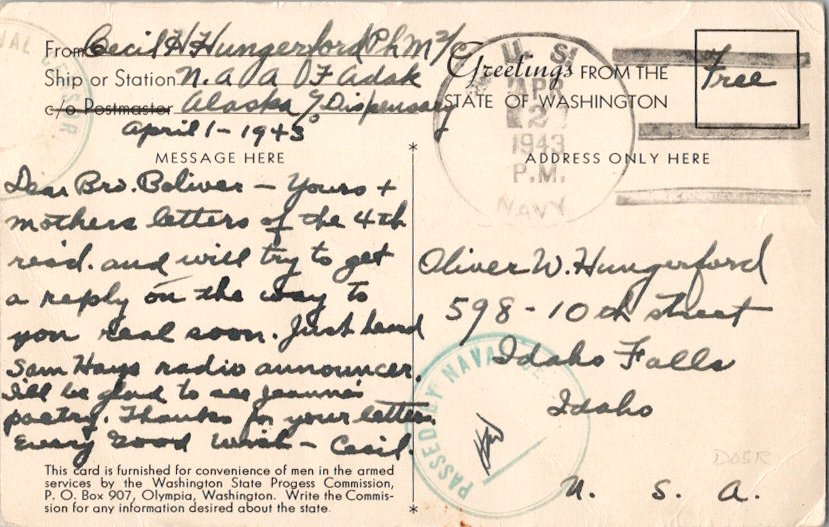 From Cecil H Hungerford PhM 2/C
Ship or Station N. A. A. F Adak
c/o Postmaster Alaska % Dispensary
April 1 - 1943
MESSAGE HERE
Dear Bro. Boliver - Yours +
mothers letters of the 4th
rec'd. and will try to get
a reply on the way to
you real soon. Just heard
Sam Hays radio announcer.
I'll be glad to see Jeanne's
poetry. Thanks for your letters.
Every Good Wish - Cecil.
This card is furnished for convenience of men in the armed
services by the Washington State Progess Commission,
P. O. Box 907, Olympia, Washington. Write the Commis-
sion for any information desired about the state.
*
*
Greetings FROM THE
STATE OF WASHINGTON
Free
U. S.
APR
2
1943
P.M.
NAVY
ADDRESS ONLY HERE
Oliver W. Hungerford
598 - 10th street
Idaho Falls
Idaho
U. S. A.
PASSED BY NAVAL
DOSR